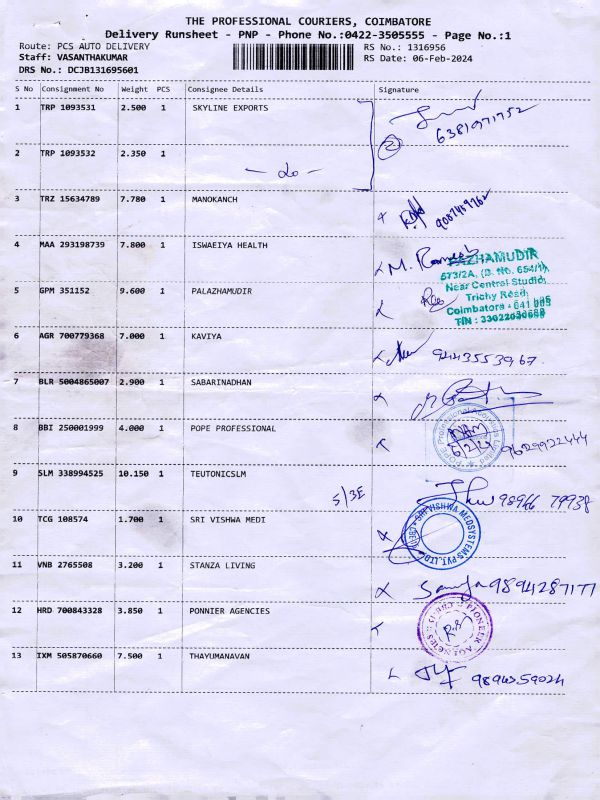 THE PROFESSIONAL COURIERS, COIMBATORE
Delivery Runsheet - PNP - Phone No.:0422-3505555 - Page No.:1
Route: PCS AUTO DELIVERY RS No.: 1316956
Staff: VASANTHAKUMAR RS Date: 06-Feb-2024
DRS No.: DCJB131695601
S No Consignment No Weight PCS Consignee Details Signature
1 TRP 1093531 2.500 1 SKYLINE EXPORTS
6381971752
2
2 TRP 1093532 2.350 1
- do -
3 TRZ 15634789 7.780 1 MANOKANCH
4 MAA 293198739 7.800 1 ISWAEIYA HEALTH
M. Ramesh
PAZHAMUDIR
573/2A, (D. No. 654/1),
Near Central Studio,
Trichy Road,
5 GPM 351152 9.600 1 PALAZHAMUDIR
Coimbatore - 641 005
TIN : 33022030688
6 AGR 700779368 7.000 1 KAVIYA
9443553967
7 BLR 5004865007 2.900 1 SABARINADHAN
8 BBI 250001999 4.000 1 POPE PROFESSIONAL
6/2/24 9629922444
9 SLM 338994525 10.150 1 TEUTONICSLM
S/3E 98966 79938
10 TCG 108574 1.700 1 SRI VISHWA MEDI
SRI VISHWA MEDSYSTEMS PVT. LTD.
11 VNB 2765508 3.200 1 STANZA LIVING
9894287177
12 HRD 700843328 3.850 1 PONNIER AGENCIES
PIONEER AGENCIES
13 IXM 505870660 7.500 1 THAYUMANAVAN